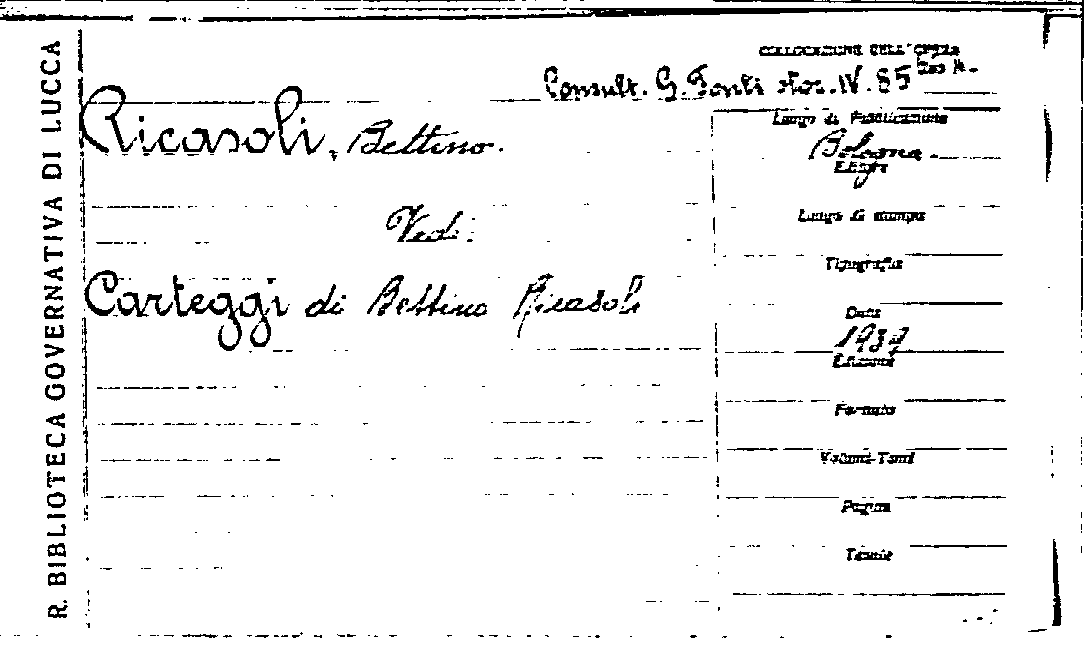 R. BIBLIOTECA GOVERNATIVA DI LUCCA
COLLOCAZIONE DELL'OPERA
Consult. G. Fonti stor. IV. 85
Ricasoli, Bettino.
Vedi:
Carteggi di Bettino Ricasoli
Luogo di Pubblicazione
Bologna.
Luogo di stampa
Tipografia
Data
1939
Edizione
Formato
Volumi-Tomi
Pagine
Tavole